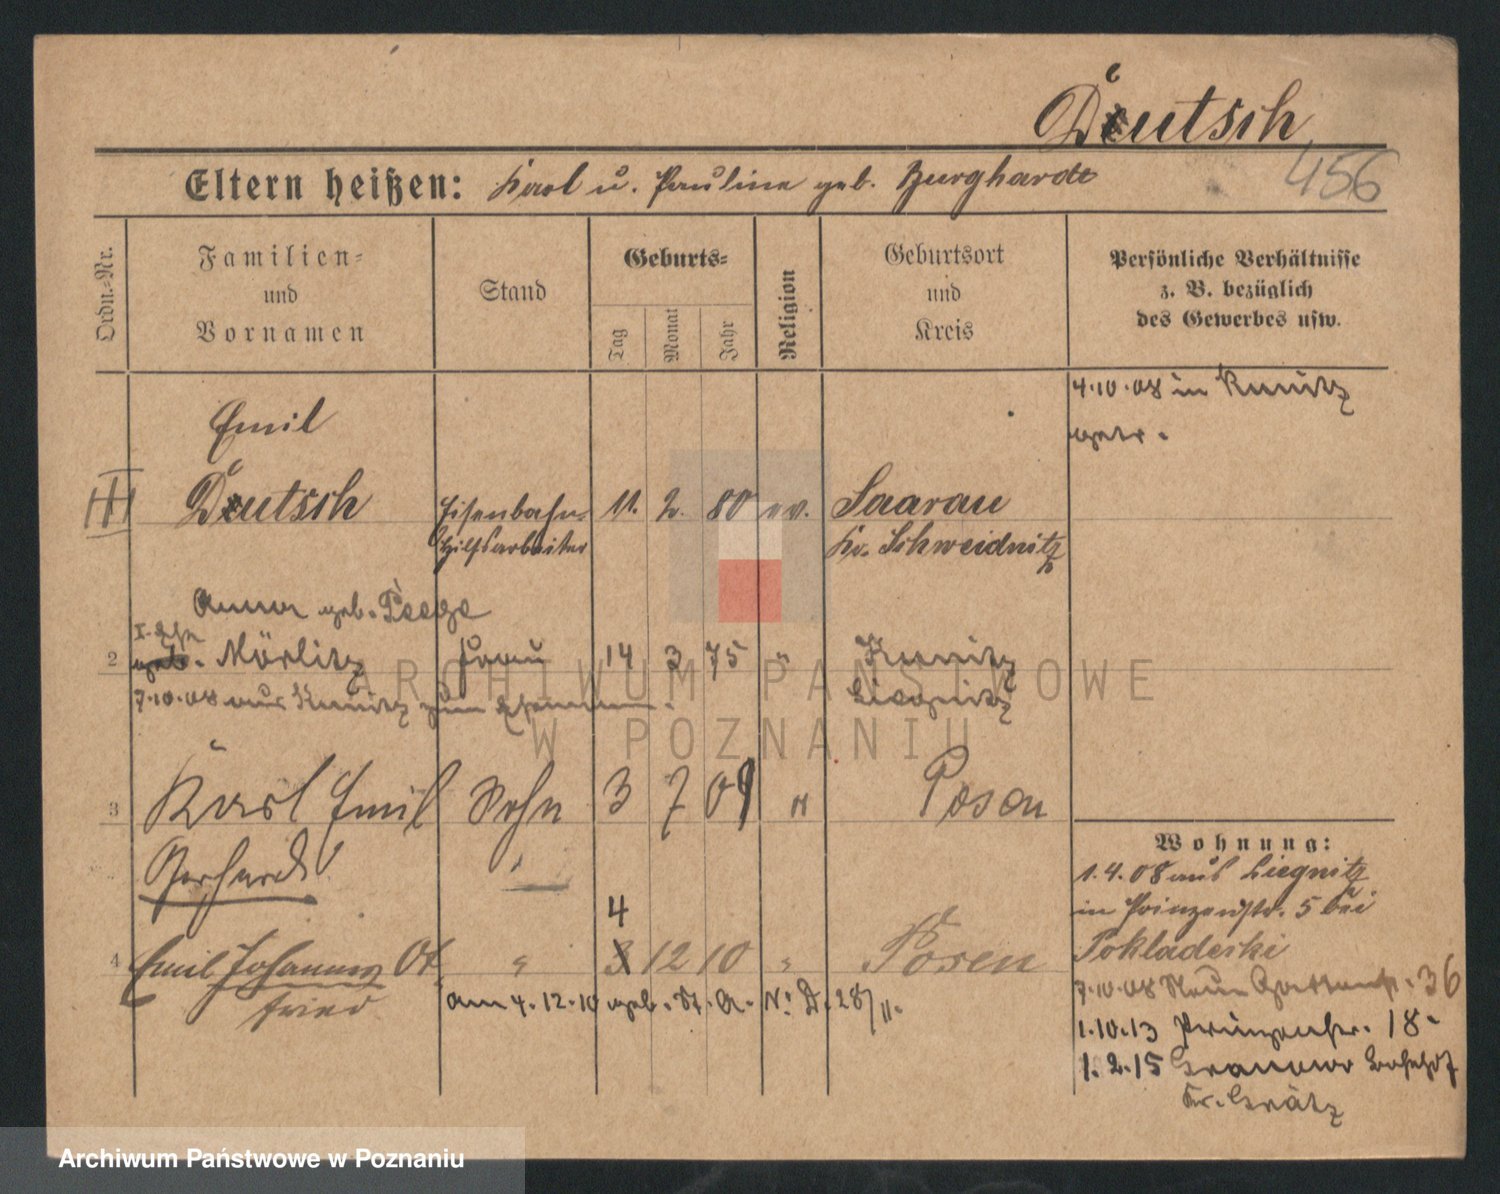 Deutsch
456
Eltern heißen: Karl u. Pauline geb. Burghardt
Ordn.-Nr.
Familien-
und
Vornamen
Stand
Geburts-
Tag
Monat
Jahr
Religion
Geburtsort
und
Kreis
Persönliche Verhältnisse
z. B. bezüglich
des Gewerbes usw.
4.10.08 in Kunitz
getr.
Emil
Deutsch Eisenbahn- 11. 2. 80 ev. Saarau
Hilfsarbeiter Kr. Schweidnitz
Anna geb.
I. Ehe
2 Mörlitz Frau 14 3 75 " Kunitz
7.10.08 aus Kunitz zum Ehemann. Liegnitz
3 Karl Emil Sohn 3 7 09 " Posen
Gerhard "
4
4 Emil Johannes Ot " 3 12 10 " Posen
fried
am 4.12.10 geb. St. A. No. D. 28/11.
Wohnung:
1.4.08 aus Liegnitz
in Prinzenstr. 5 bei
Pokladecki
7.10.08 Neue Gartenstr. 36
1.10.13 Prinzenstr. 18.
1.2.15 Bahnhof
Kr. Grätz
ARCHIWUM PAŃSTWOWE
W POZNANIU
Archiwum Państwowe w Poznaniu